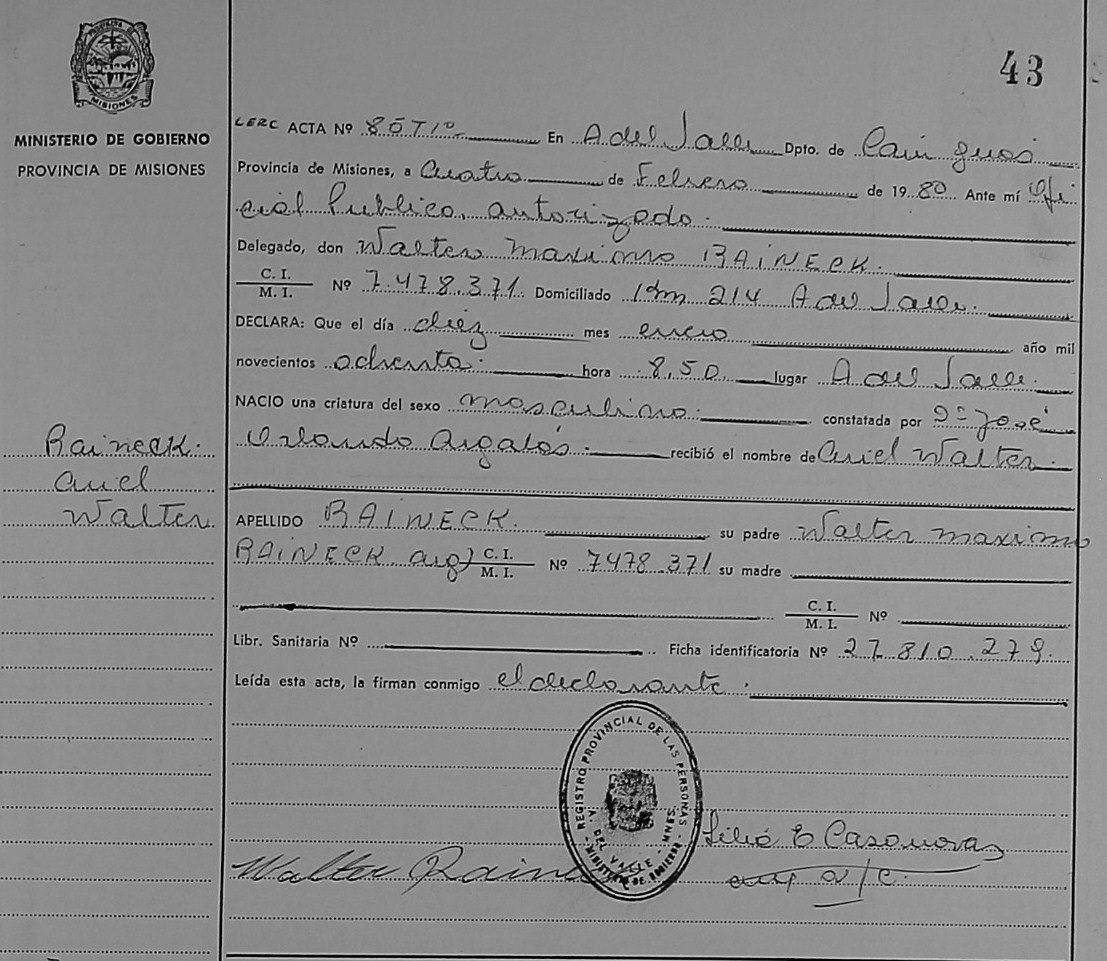 PROVINCIA DE
MISIONES
MINISTERIO DE GOBIERNO
PROVINCIA DE MISIONES
43
ACTA Nº 85 Tº En A del Valle Dpto. de Cainguas
Provincia de Misiones, a Cuatro de Febrero de 1980 Ante mí Ofi
cial Publico autorizado
Delegado, don Walter Maximo RAINECK.
C. I.
M. I. Nº 7.478.371 Domiciliado 214 A del Valle.
DECLARA: Que el día diez mes enero año mil
novecientos ochenta. hora 8,50 lugar A del Valle.
NACIO una criatura del sexo masculino. constatada por Dº José
Orlando recibió el nombre de Ariel Walter.
Raineck.
Ariel
Walter
APELLIDO RAINECK. su padre Walter Maximo
RAINECK arg) C. I.
M. I. Nº 7478.371 su madre
C. I.
M. I. Nº
Libr. Sanitaria Nº Ficha identificatoria Nº 27.810.279.
Leída esta acta, la firman conmigo el declarante.
REGISTRO PROVINCIAL DE LAS PERSONAS
A. DEL VALLE - MNES.
MINISTERIO DE GOBIERNO
E Casanovas
Walter Raineck
a/c.